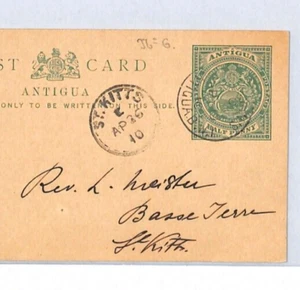 ST CARD
ANTIGUA
ONLY TO BE WRITTEN ON THIS SIDE.
ANTIGUA
HALF PENNY
ST. KITTS
E
AP 26
10
Rev. L. Meister
Basse Terre
St. Kitts